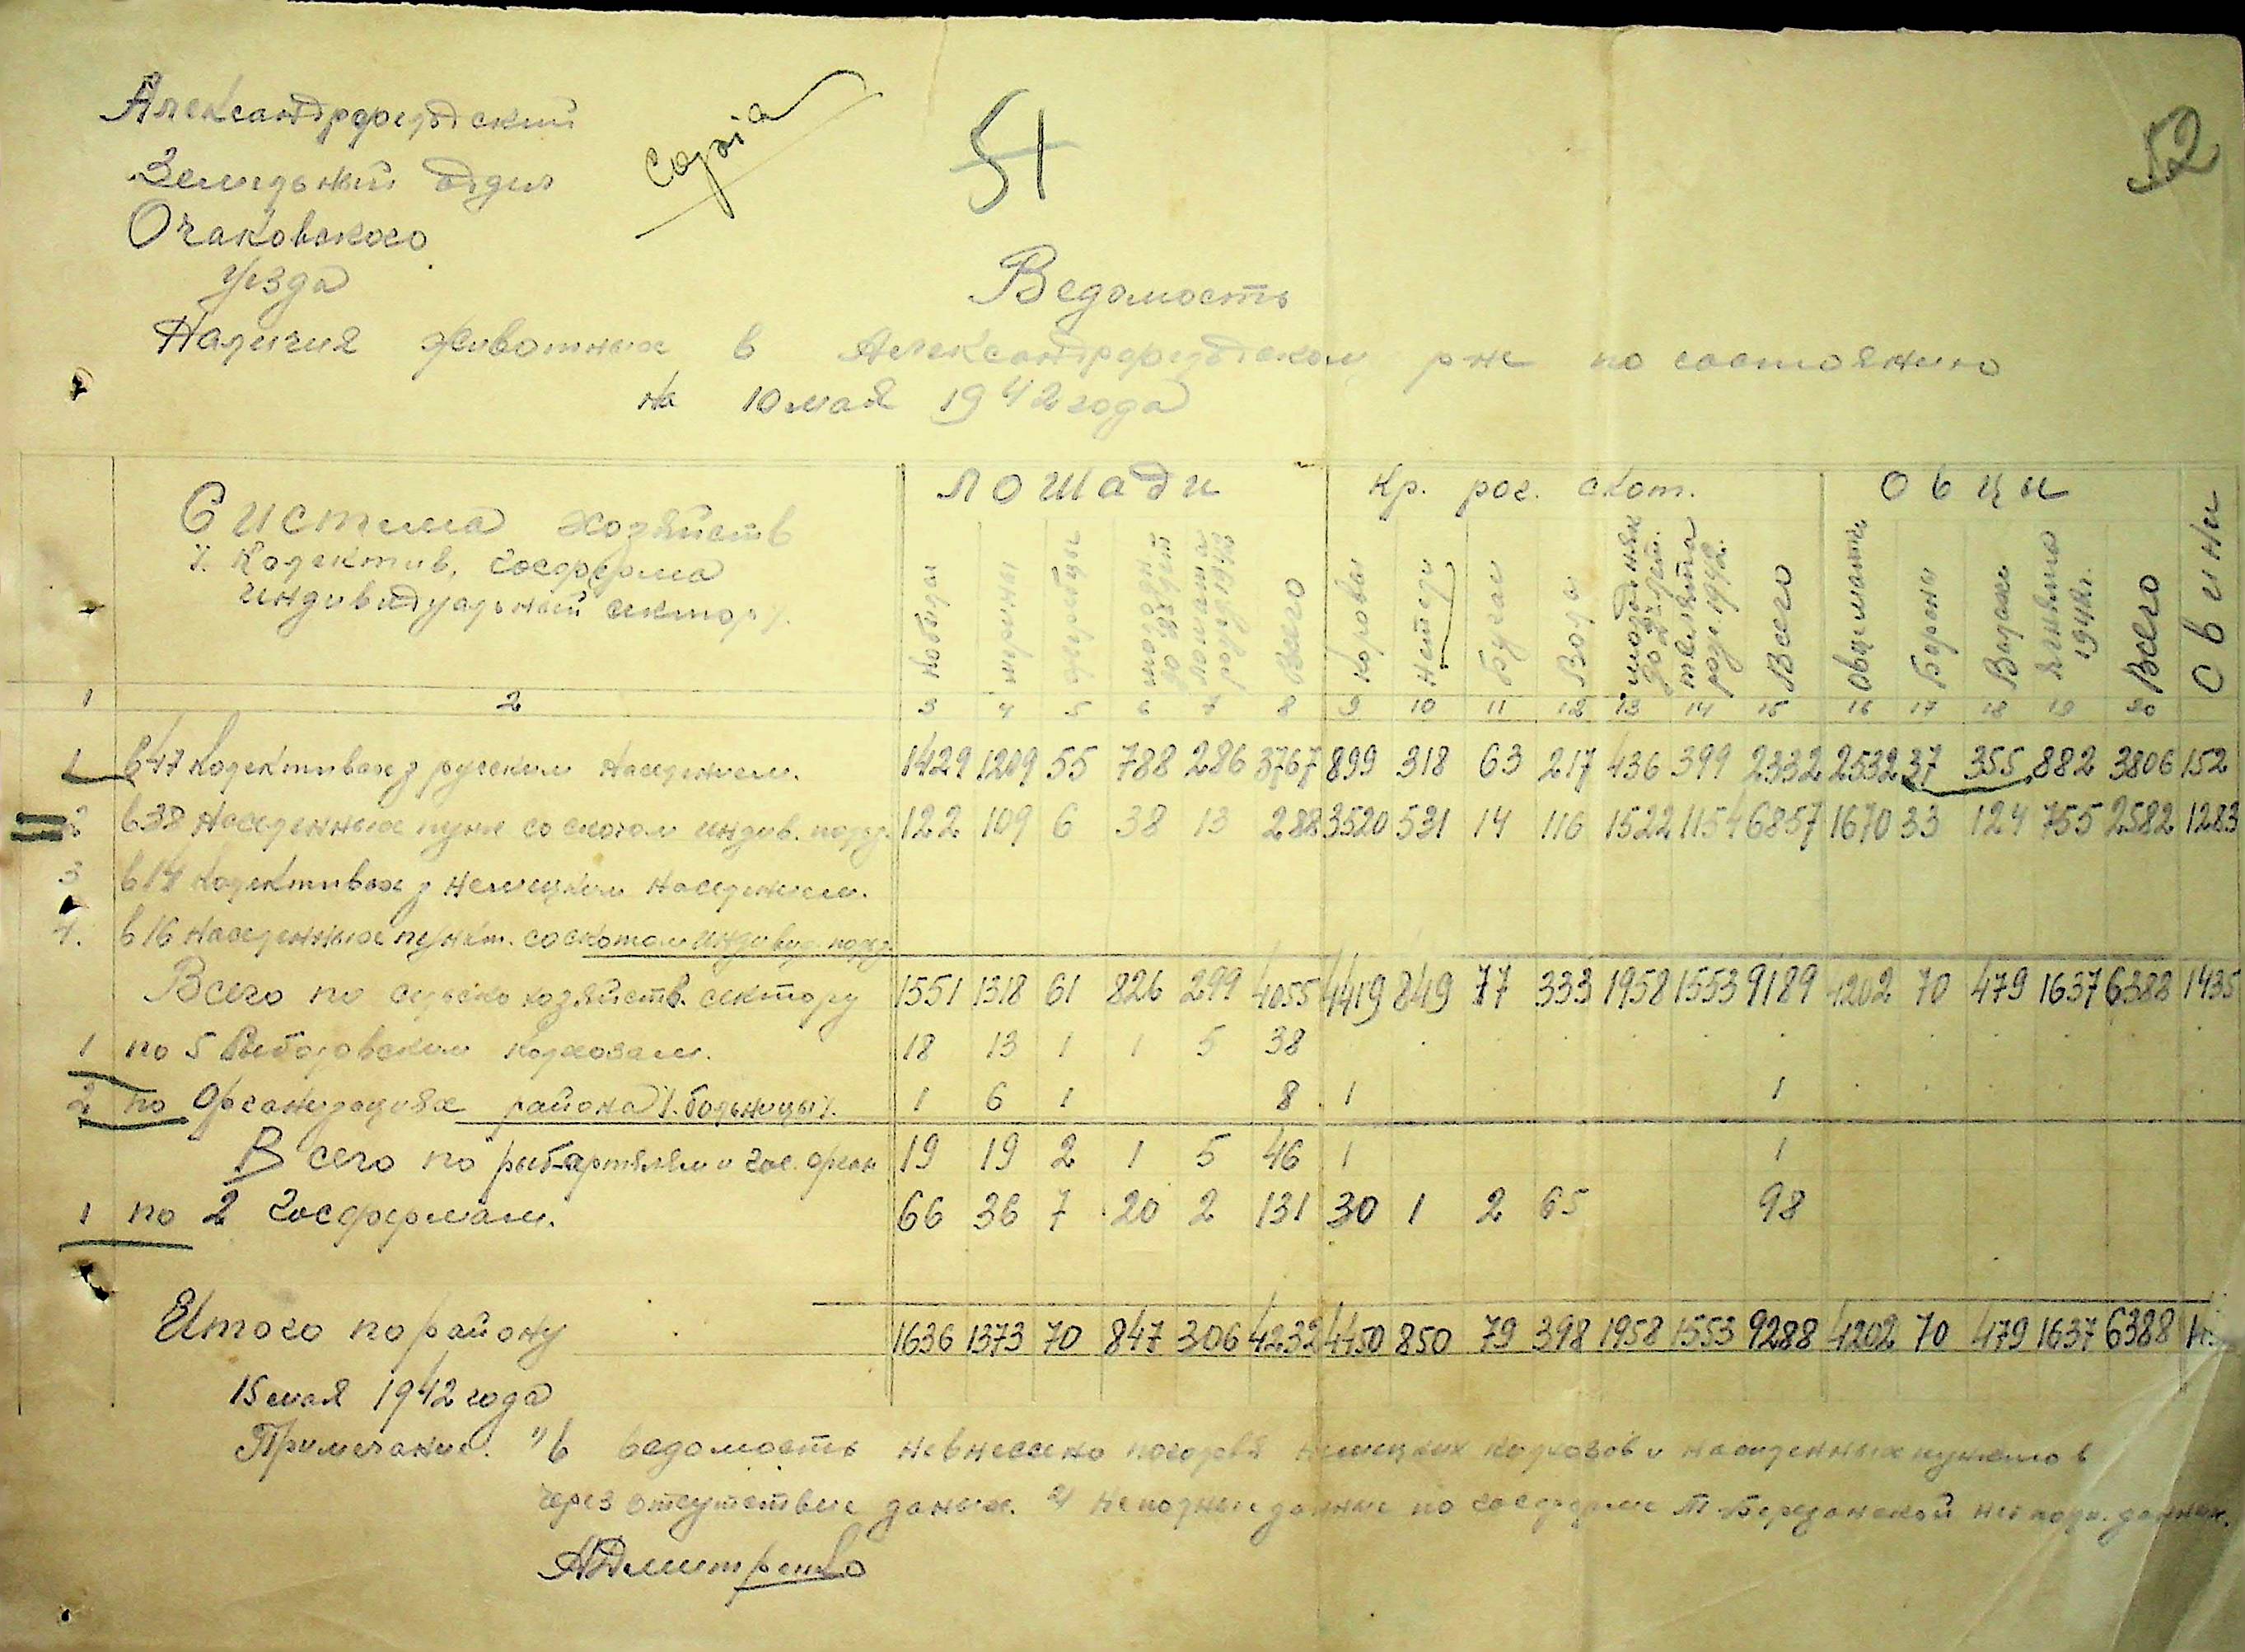 Александрфельдский
Земельный отдел
Очаковского
уезда
Copia
51
52
Ведомость
Наличия животных в Александрфельдском р-не по состоянию
на 10 мая 1942 года
Система хозяйств
/. Колектив, Госферма
индивидуальный сектор /.
Лошади
Кр. рог. скот.
Овцы
Свини
Кобылы
мерины
жеребцы
Всего
Коровы
Нетели
Бугаи
Волы
молодняк до 2х лет.
телята рожд. 1942.
Всего
Овцематки
Бараны
Валахи
Ягнята 1942г.
Всего
1 2 3 4 5 6 7 8 9 10 11 12 13 14 15 16 17 18 19 20
1 в 47 Колективах з руским населением. 1429 1209 55 788 286 3767 899 318 63 217 436 399 2332 2532 37 355 882 3806 152
2 в 38 Населенных пунк со скотом индив. польз. 122 109 6 38 13 288 3520 531 14 116 1522 1154 6857 1670 33 124 755 2582 1283
3 в 14 Колективах з немецким населением.
4. в 16 населенных пункт. со скотом индивид. польз.
Всего по сельско хозяйств. сектору 1551 1318 61 826 299 4055 4419 849 77 333 1958 1553 9189 4202 70 479 1637 6388 1435
1 по 5 Рыболовским колхозам. 18 13 1 1 5 38
2 по Организациях района /.больницы/. 1 6 1 8 1 1
Всего по рыб-артелям и гос. орган 19 19 2 1 5 46 1 1
1 по 2 Госфермам. 66 36 7 20 2 131 30 1 2 65 98
Итого по району 1636 1373 70 847 306 4232 4450 850 79 398 1958 1553 9288 4202 70 479 1637 6388
15 мая 1942 года
Примечание. 1/ В ведомость не внесено поголовя немецких колхозов и населенных пунктов
через отсутствие даных. 2/ Неполные данные по госферме Т-Березанской нет полн. данных.
АДмитренко